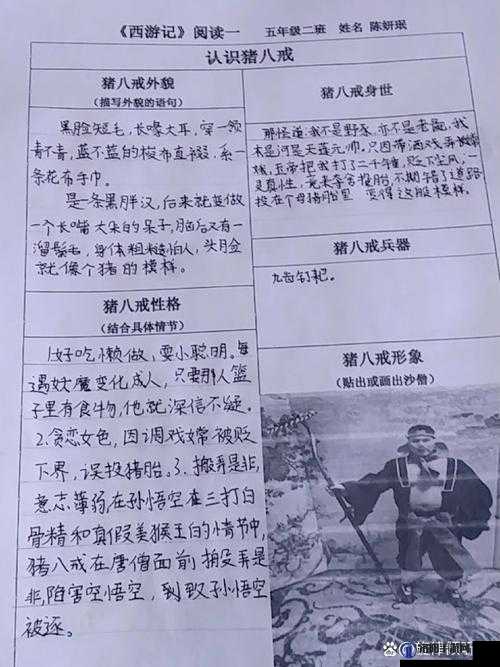 《西游记》阅读一 五年级二班 姓名 陈妍珉
认识猪八戒
猪八戒外貌
（描写外貌的语句）
黑脸短毛，长喙大耳，穿一领
青不青，蓝不蓝的梭布直裰，系一
条花布手巾。
是一条黑胖汉，后来就变做
一个长嘴大朵的呆子，脑后又有一
溜鬃毛，身体粗糙怕人，头脸
就像个猪的模样。
猪八戒身世
那怪道：我不是野豕，亦不是老彘，我
本是河是天蓬元帅，只因带酒戏弄嫦
娥，玉帝把我打了二千锤，贬下尘凡，一
灵真性，竟来夺舍投胎，不期错了道路
投在个母猪胎里 变得这般模样。
猪八戒兵器
九齿钉耙。
猪八戒性格
（结合具体情节）
1.好吃懒做，耍小聪明。每
遇妖魔变化成人，只要那人篮
子里有食物，他就深信不疑。
2.贪恋女色，因调戏嫦被贬
下界，误投猪胎。3、搬弄是非，
意志薄弱，在孙悟空在三打白
骨精和真假美猴王的情节中，
猪八戒在唐僧面前拨弄是
非，陷害空悟空，到致孙悟空
被逐。
猪八戒形象
（贴出或画出沙僧）